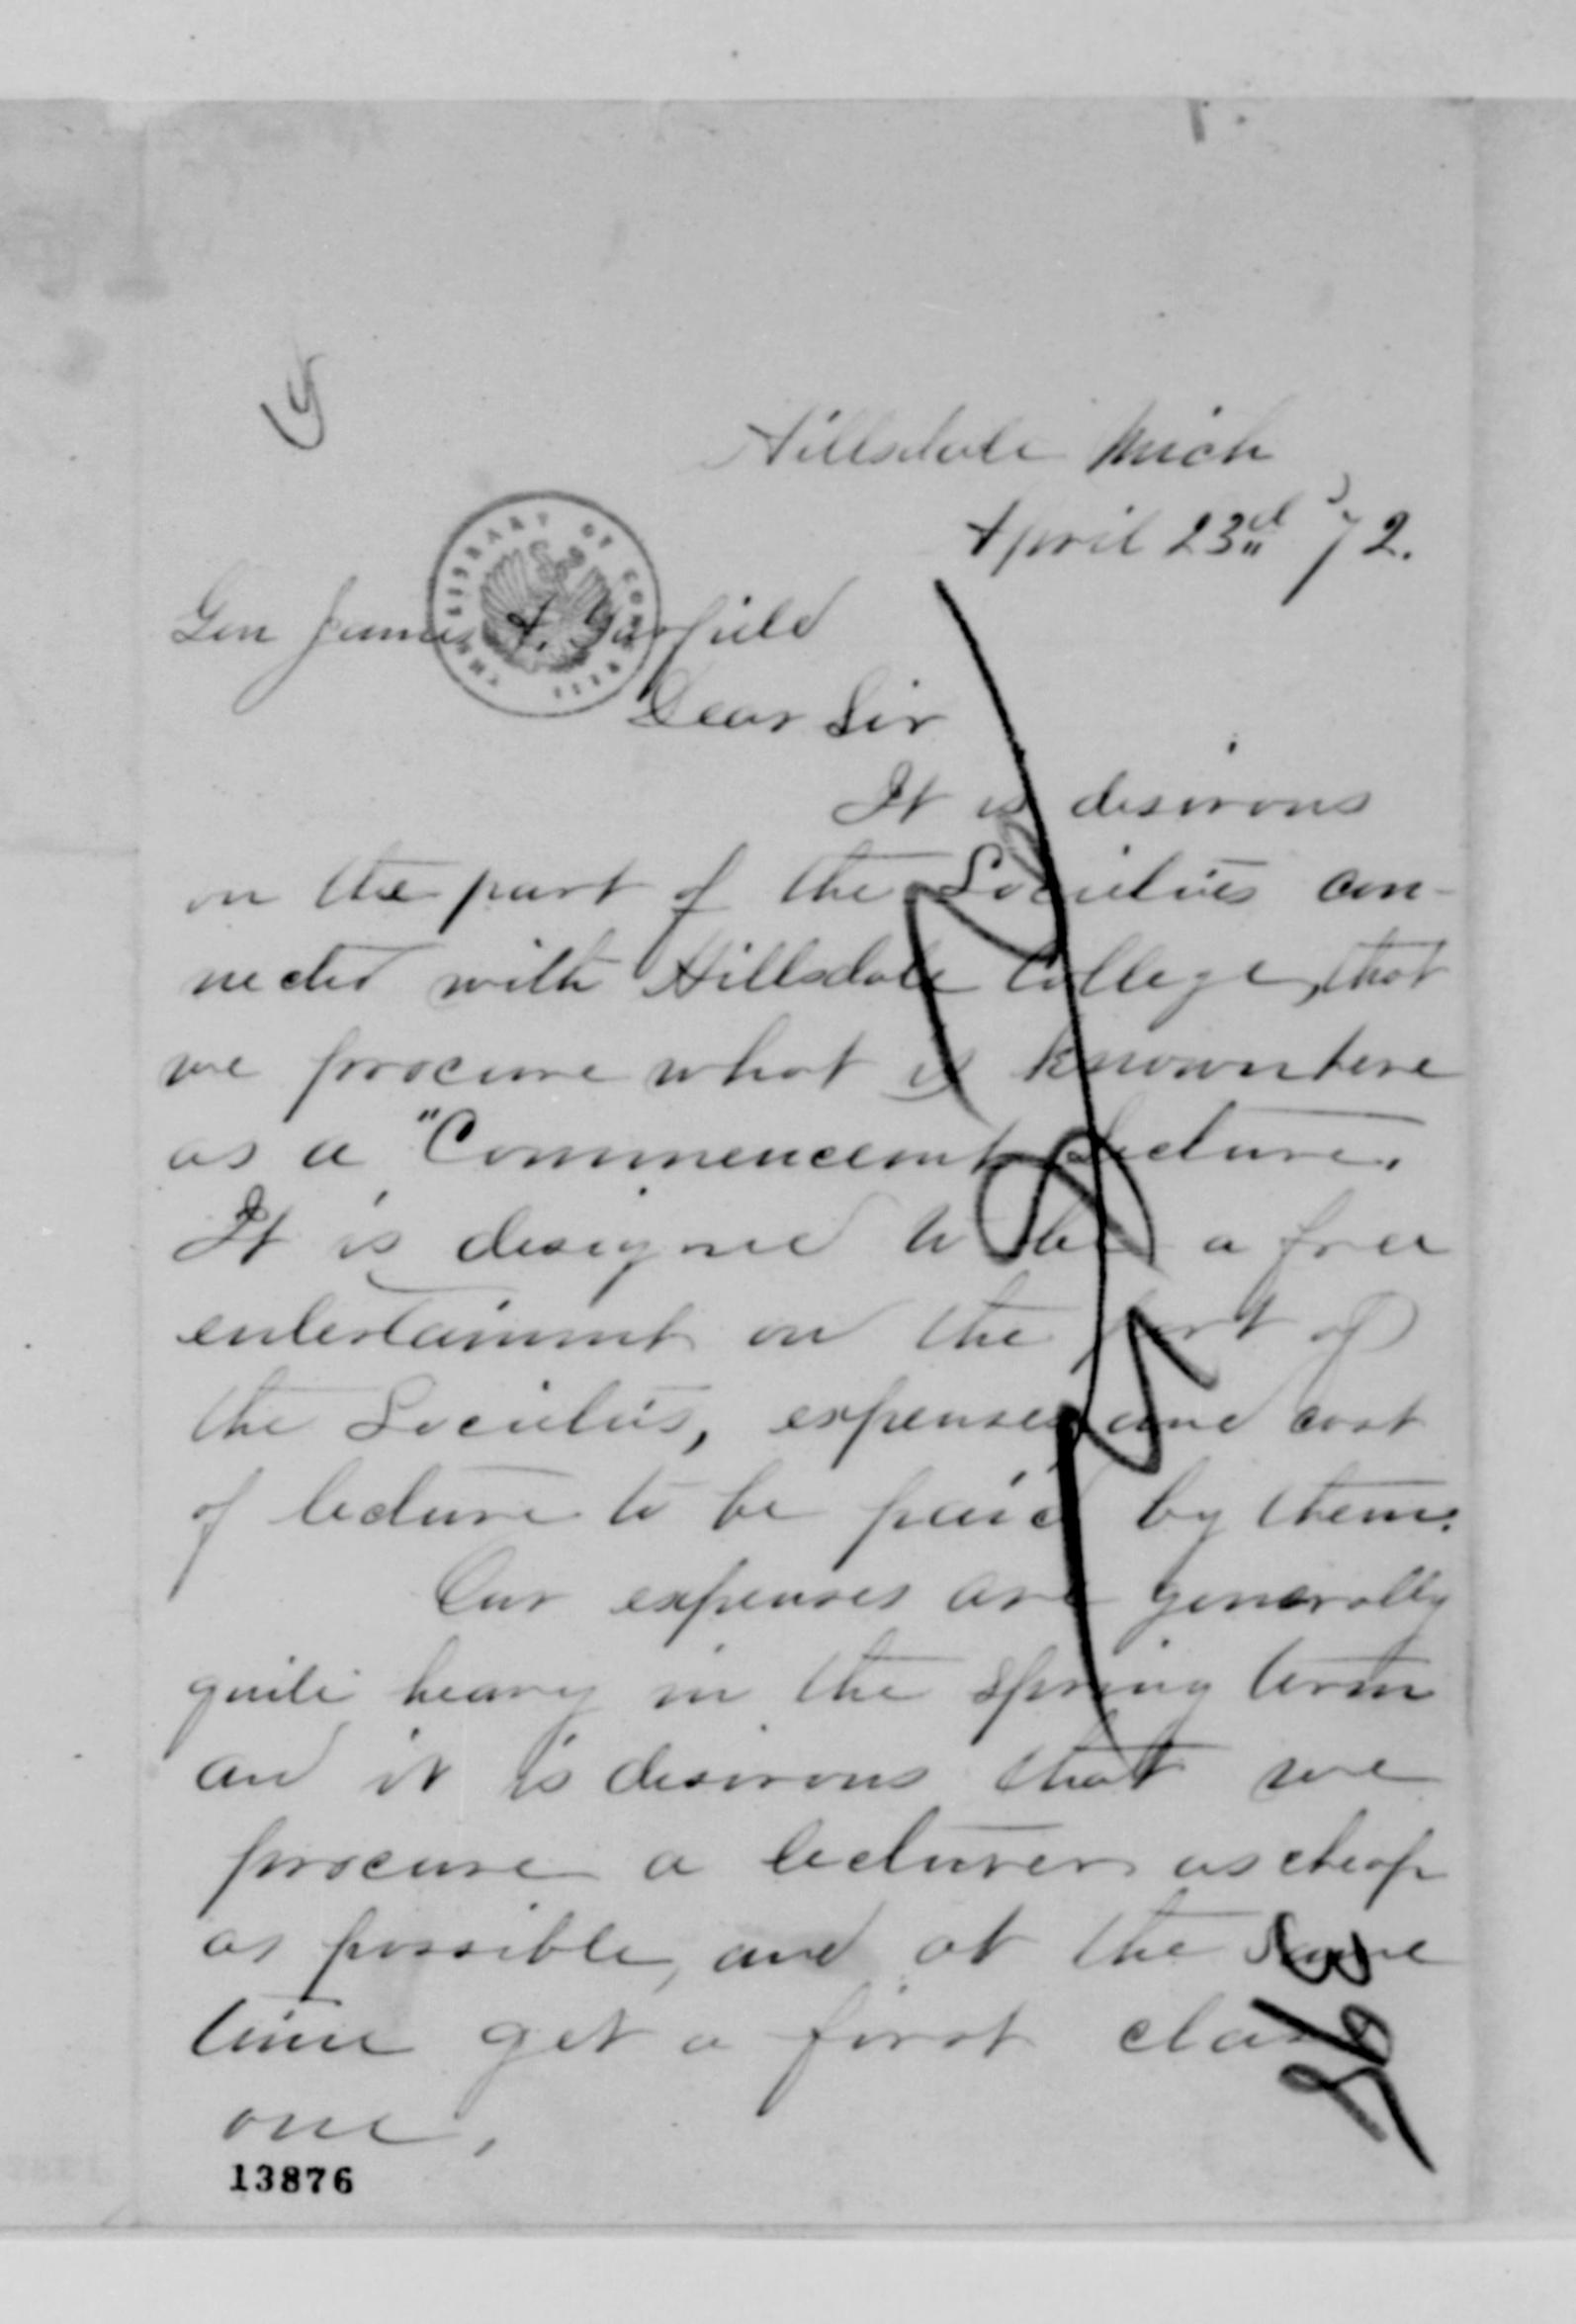 Hillsdale Mich
April 23rd '72.
Gen James A. Garfield
Dear Sir
It is desirous
on the part of the Societies con-
nected with Hillsdale College, that
we procure what is known here
as a "Commencemt Lecture.
It is designed to be a free
entertainmnt on the part of
the Societies, expenses and cost
of lecture to be paid by them.
Our expenses are generally
quite heavy in the spring term
and it is desirous that we
procure a lecturer as cheap
as possible, and at the same
time get a first class
one,
13876
THE LIBRARY OF CONGRESS